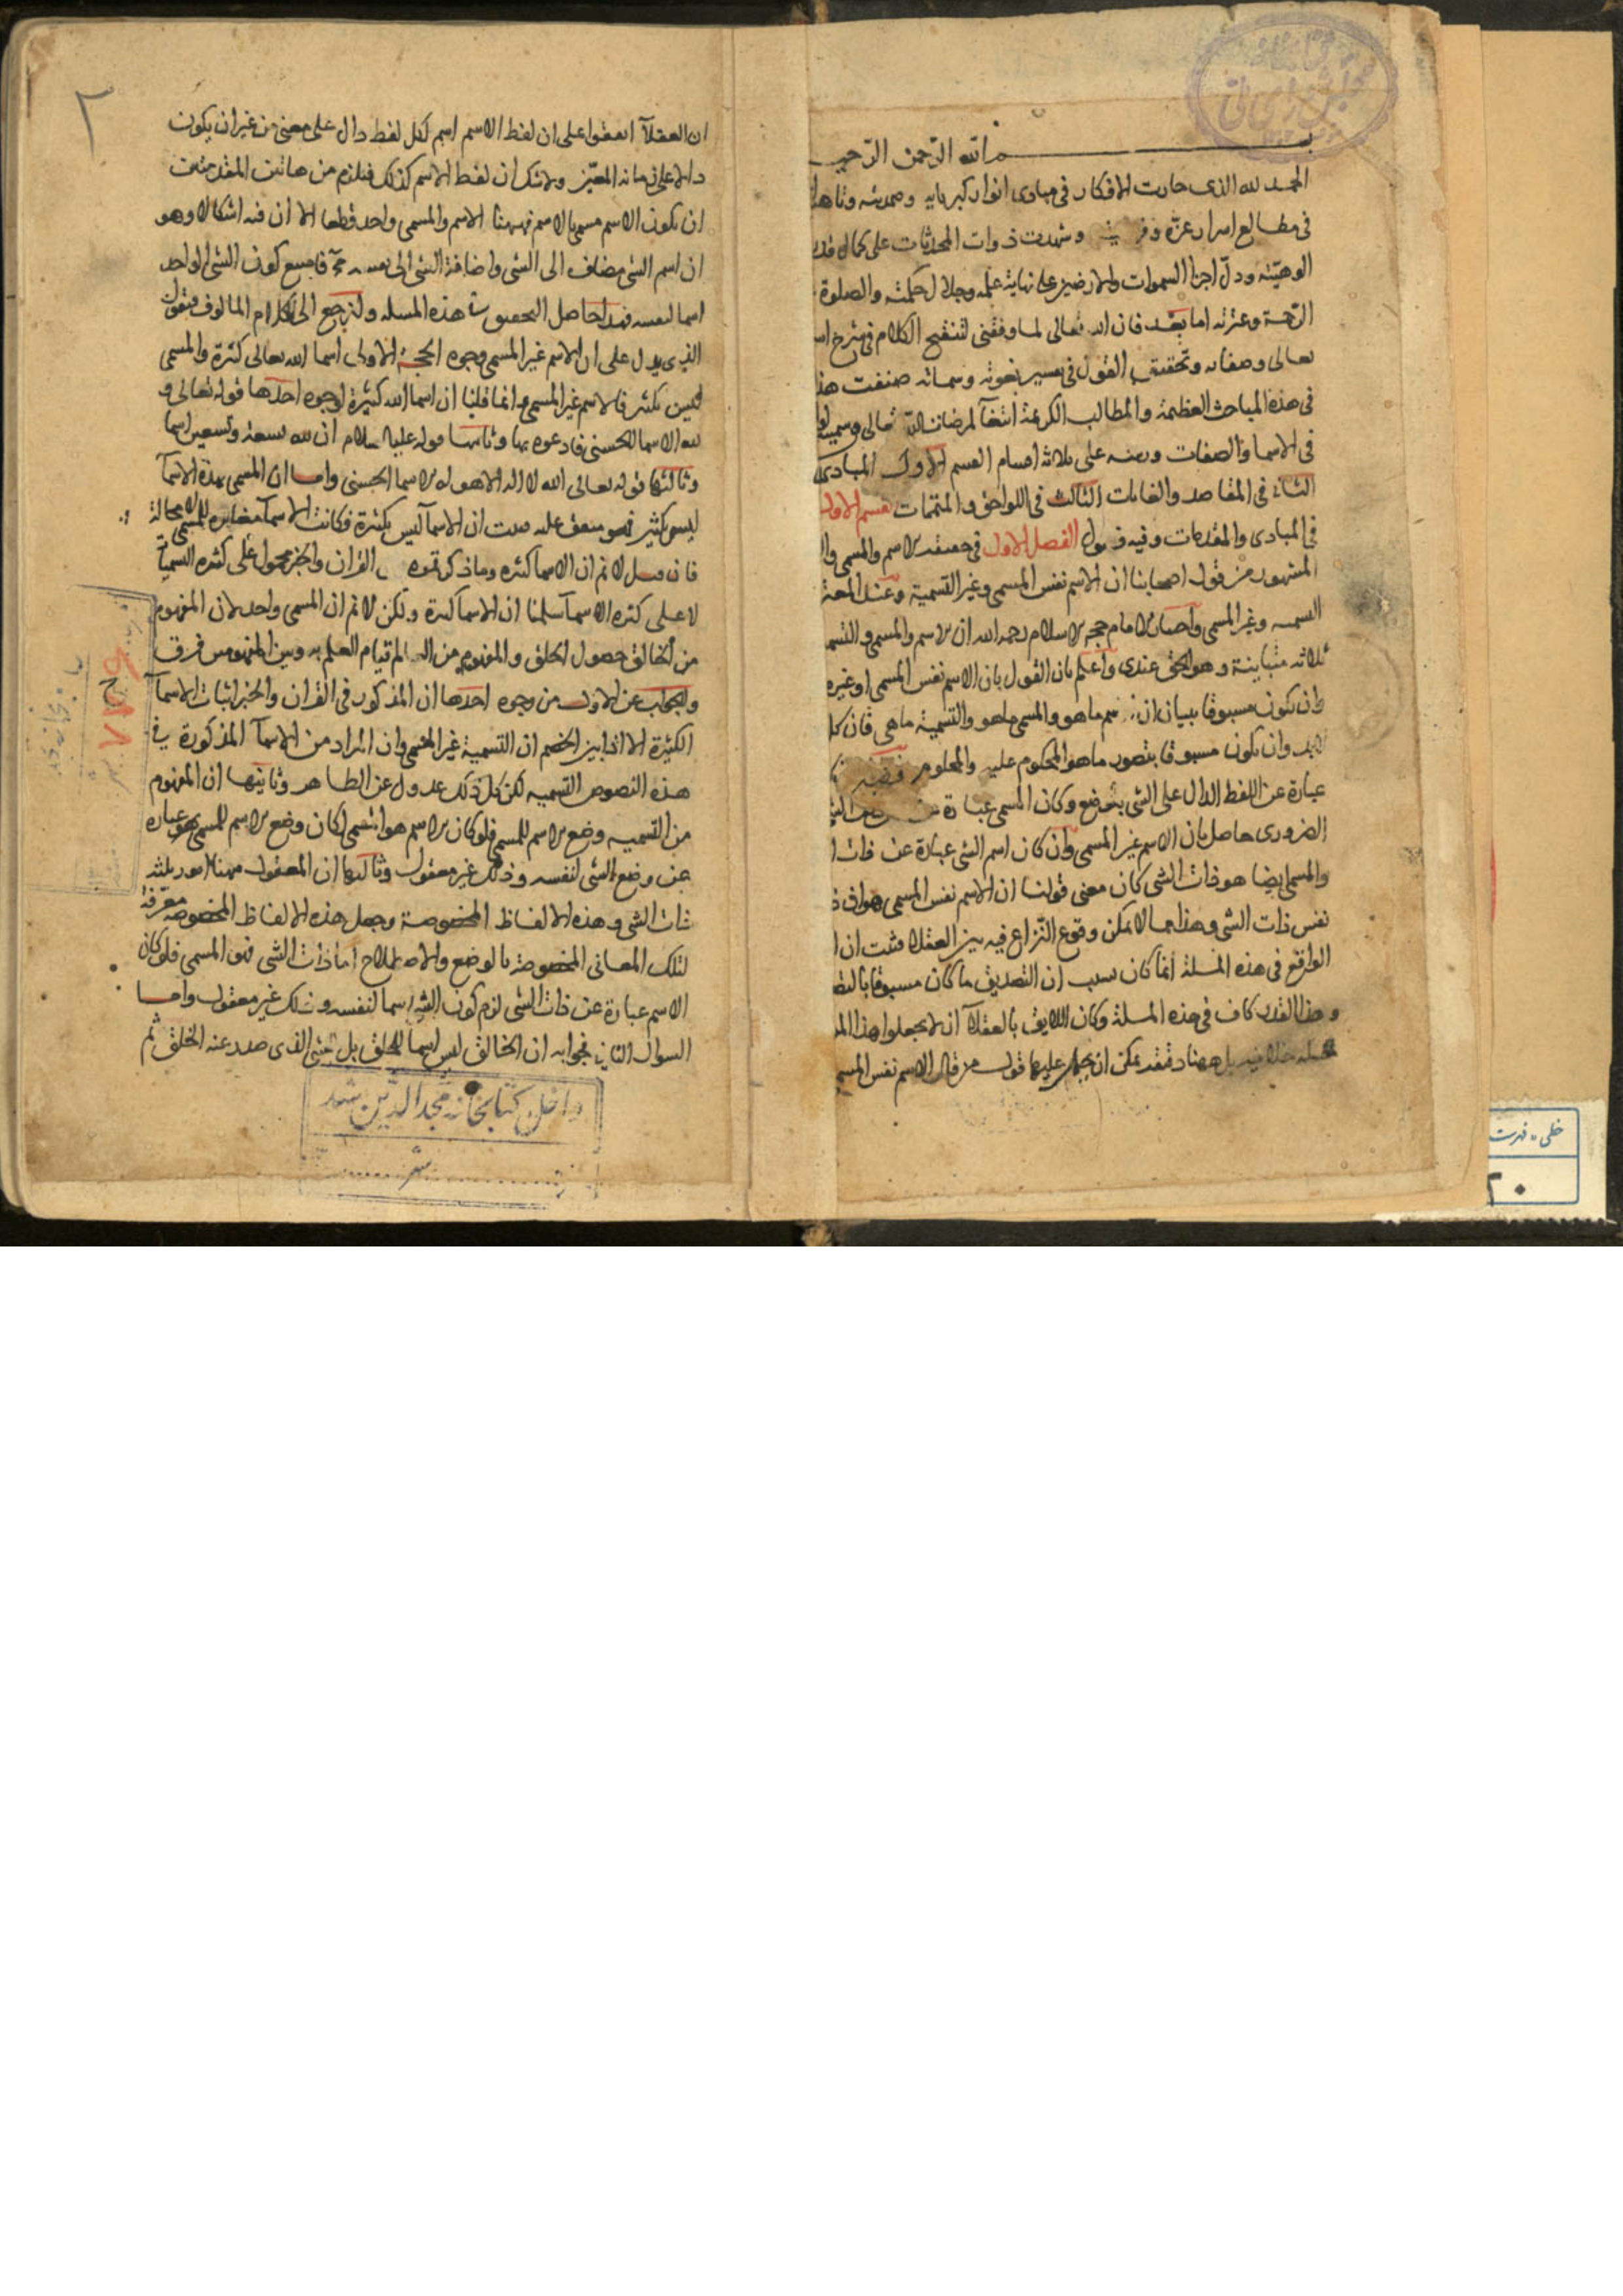 بسم الله الرحمن الرحيم
الحمد لله الذى حارت الافكار فى مبادى انوار كبريايه وصمديته وتاهت
فى مطالع اسرار عزة وشهدت ذوات المحدثات على كمال قدرة
الوهيته ودل اجزا السموات والارضين على نهاية علمه وجلال حكمته والصلوة
الرحمة وعترته اما بعد فان الله تعالى لما وفقنى لتنقيح الكلام فى شرح اسما
تعالى وصفاته وتحقيق القول فى تفسير نعوته وسماته صنفت هذا
فى هذة المباحث العظيمة والمطالب الكريمة ابتغآ لمرضات الله تعالى وسميته لوا
فى الاسما والصفات ورتبته على ثلاثه اقسام القسم الاول المبادى
الثانى فى المقاصد والغايات الثالث فى اللواحق والمتممات القسم الاول
فى المبادى والمقدمات وفيه فصول الفصل الاول فى حقيقة الاسم والمسمى وال
المشهور من قول اصحابنا ان الاسم نفس المسمى وغير التسمية وعند المعتز
التسميه وغير المسمى واختيار الامام حجه الاسلام رحمه الله ان الاسم والمسمى والتسم
ثلاثه متباينة وهو الحق عندى واعلم بان القول بان الاسم نفس المسمى او غيره
وان يكون مسبوقا ببيان ان الاسم ما هو والمسمى ما هو والتسمية ما هى فان كل
لابد وان يكون مسبوقا بتصور ماهو المحكوم عليه والمحكوم
عبارة عن اللفظ الدال على الشى بالوضع وكان المسمى عبارة عن
الضرورى حاصل بان الاسم غير المسمى وان كان اسم الشى عبارة عن ذات ا
والمسمى ايضا هو ذات الشى كان معنى قولنا ان الاسم نفس المسمى هو ان ذ
نفس ذات الشى وهذا مما لا يمكن وقوع النزاع فيه بين العقلا فثبت ان ا
الواقع فى هذه المسلة انما كان بسبب ان التصديق ما كان مسبوقا بالتص
وهذا القدر كاف فى هذه المسلة وكان اللايق بالعقلآ ان لا يجعلوا هذا الم
مسله خلافيه بل ههنا دقيقه يمكن ان يحمل عليها قول من قال الاسم نفس المسم
٢
ان العقلآ اتفقوا على ان لفظ الاسم اسم لكل لفظ دال على معنى من غير ان يكون
دالا على زمانه المعين ولا شك ان لفظ الاسم كذلك فيلزم من هاتين المقدمتين
ان يكون الاسم مسمى بالاسم فههنا الاسم والمسمى واحد قطعا الا ان فيه اشكالا وهو
ان اسم الشى مضاف الى الشى واضافة الشى الى نفسه مح فامتنع كون الشى الواحد
اسما لنفسه فهذا حاصل التحقيق فى هذه المسله ولنرجع الى الكلام المالوف فنقول
الذى يدل على ان الاسم غير المسمى وجوه الحجة الاولى اسما الله تعالى كثرة والمسمى
ليس بكثير فالاسم غير المسمى وانما قلنا ان اسما الله كثيرة لوجوه احدها قوله تعالى و
لله الاسما الحسنى فادعوه بها وثانيها قوله عليه السلام ان لله تسعة وتسعين اسما
وثالثها قوله تعالى الله لا اله الا هو له الاسما الحسنى واما ان المسمى بهذة الاسمآ
ليس بكثير فهو متفق عليه فثبت ان الاسمآ ليس بكثرة فكانت الاسمآ مغايره للمسمى لا محالة
فان قيل لا نم ان الاسمآ كثره وما ذكرتموه القران والخبر محمول على كثره التسميا
لا على كثره الاسمآ سلمنا ان الاسمآ كثيرة ولكن لا نم ان المسمى واحد لان المفهوم
من الخالق حصول الخلق والمفهوم من العالم قيام العلم به وبين المفهومين فرق
والجواب عن الاول من وجوه احدها ان المذكور فى القران والخبر اثبات الاسمآ
الكثيرة الا اذا بين الخصم ان التسمية غير الاسم وان المراد من الاسمآ المذكورة فى
هذه النصوص التسميه لكن كل ذلك عدول عن الظاهر وثانيها ان المفهوم
من التسميه وضع الاسم للمسمى فلو كان الاسم هو المسمى لكان وضع الاسم للمسمى هو عباره
عن وضع الشى لنفسه وذلك غير معقول وثالثها ان المعقول ههنا امور ثلثه
ذات الشى وهذه الالفاظ المخصوصة وجعل هذه الالفاظ المخصوصه معرفة
لتلك المعانى المخصوصة بالوضع والاصطلاح اما ذات الشى فهو المسمى فلو كان
الاسم عبارة عن ذات الشى لزم كون الشى اسما لنفسه وذلك غير معقول واما
السوال الثانى فجوابه ان الخالق ليس اسما للخلق بل للشى الذى صدر عنه الخلق ثم
داخل كتابخانه مجد الدين شد
خطى - فهرست